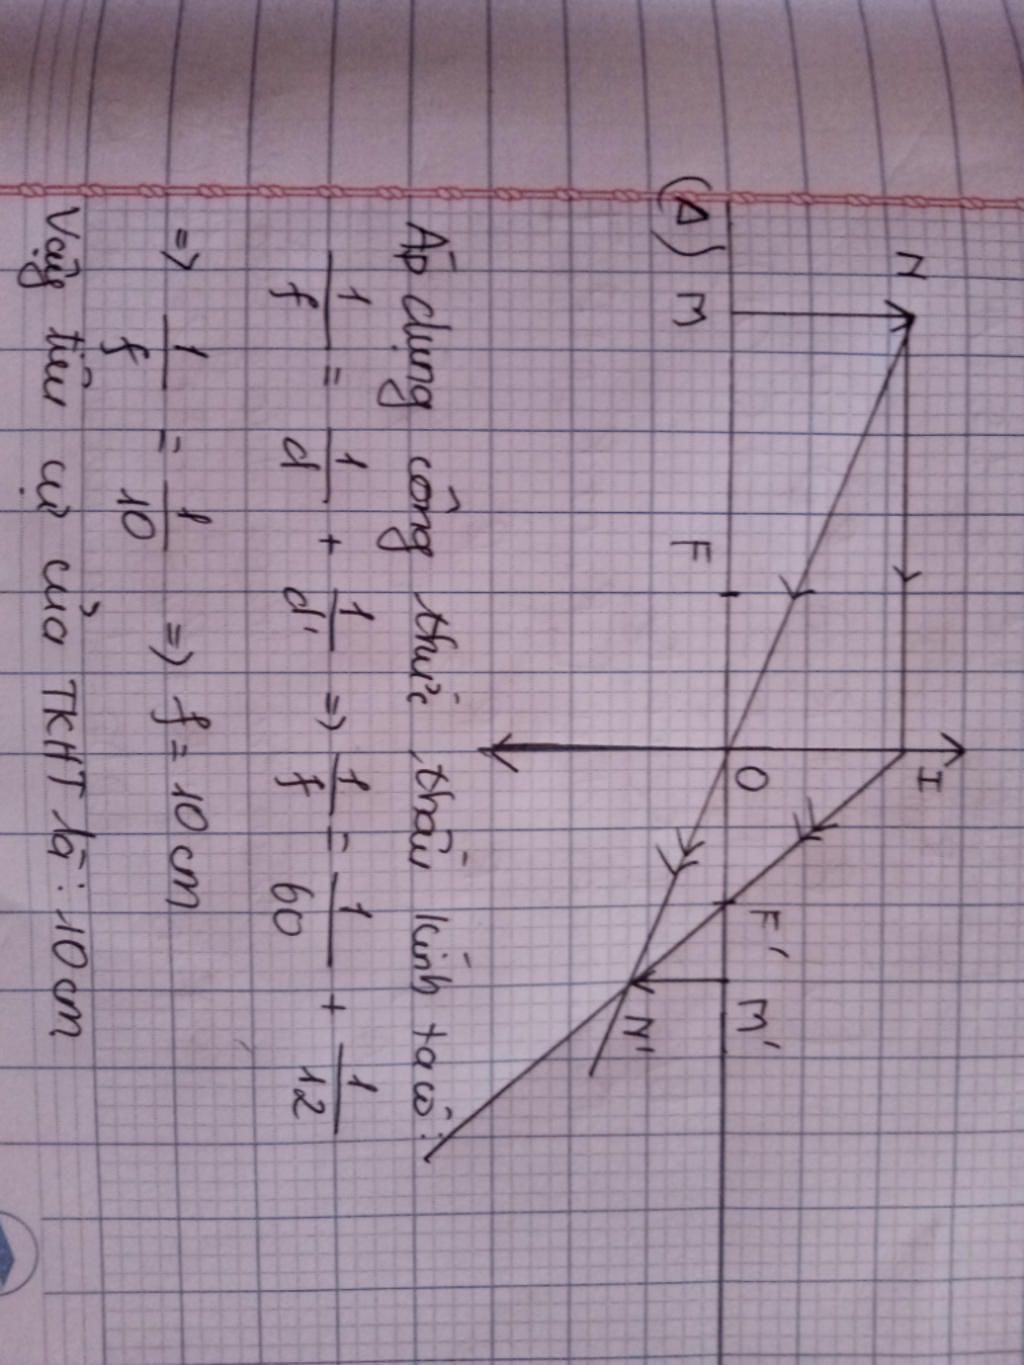 N
I
(Δ) M F O F' M'
N'
Áp dụng công thức thấu kính ta có:
1/f = 1/d + 1/d' => 1/f = 1/60 + 1/12
=> 1/f = 1/10 => f = 10 cm
Vậy tiêu cự của TKHT là: 10 cm